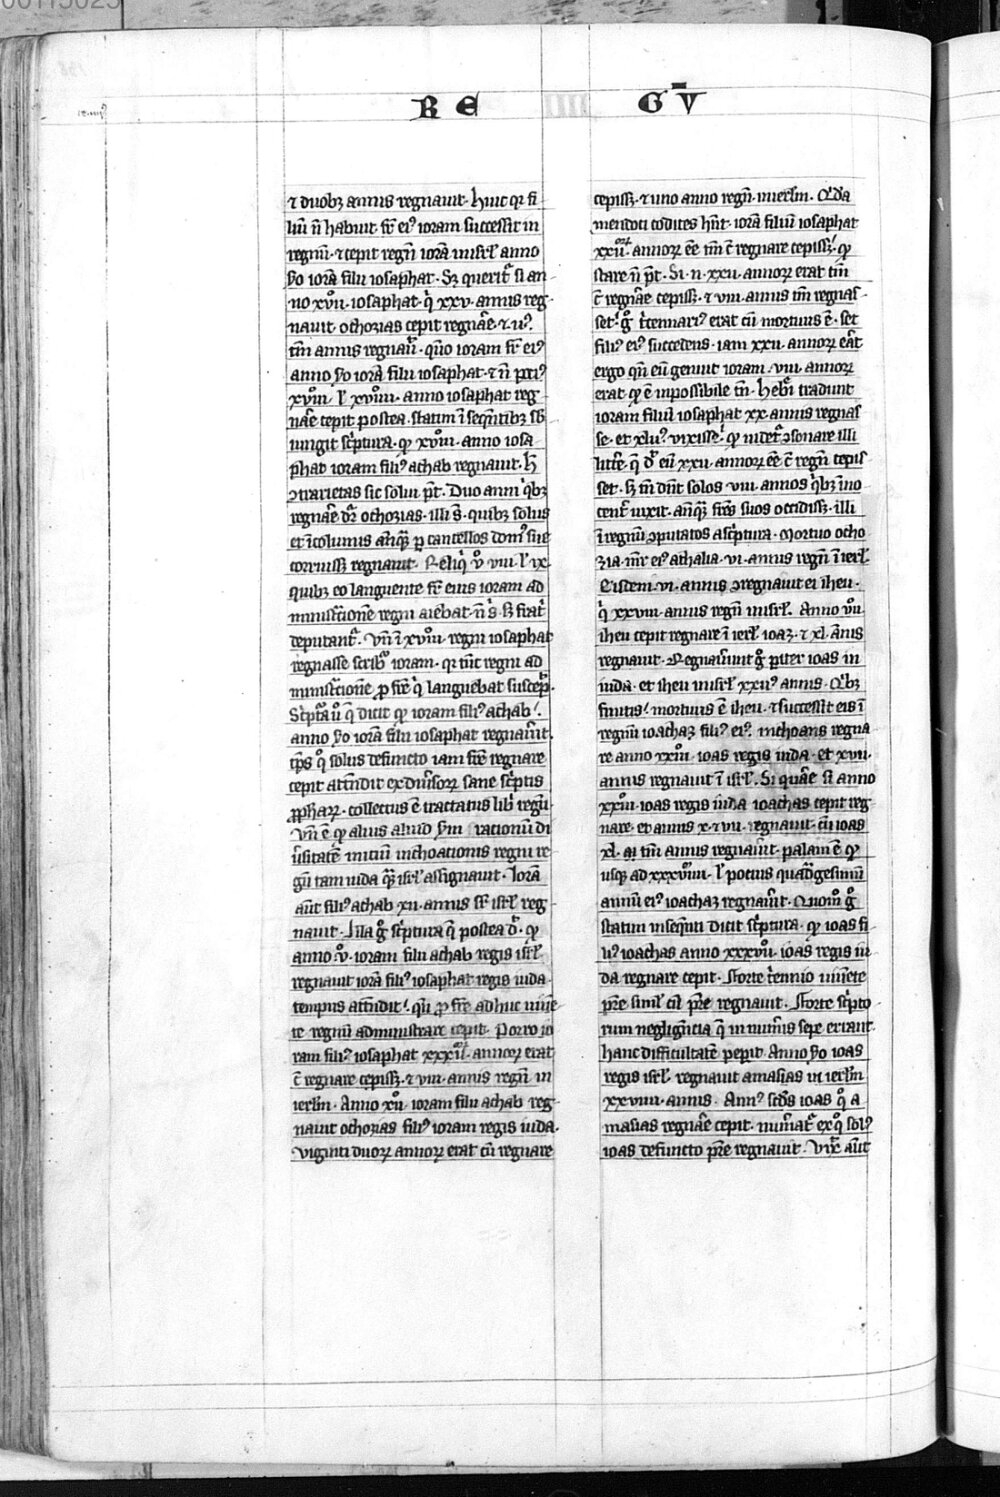 RE GV̄
⁊ duobꝫ annis regnauit. Huic qꝛ fi
liū ñ habuit. fr̄ eiꝰ ioram successit in
regnū. ⁊ cepit regñ iorā iu isrl̓ anno
ẜo iorā filii iosaphat. Sꝫ querit̄ si an
no xvıı̊. iosaphat. q̇ xxv. annis reg
nauit ochozias cepit regnāe. ⁊ .ıı.
tm̄ annis regnau̅. quo ioram fr̄ eiꝰ
anno ẜo iorā filii iosaphat. ⁊ ñ potiꝰ
xvıııı̊. l̓ xvıııı̊. anno iosaphat reg
nāe cepit postea. statim ī seqn̄tibꝫ sb̄
iungit sc̓ptura. qꝫ xvıııı̊. anno iosa
phat ioram filiꝰ achab regnauit. H̄
ↄtrarietas sic solui p̄t. Duo anni q̇bꝫ
regnāe dr̄ ochozias. illi s̄. quibꝫ solus
et īcolumis anteqꝫ ꝑ cancellos domꝰ sue
corruissꝫ regnauit. Reliq̇ ṽ vııı. l̓ ıx.
quibꝫ eo languente fr̄ eius ioram ad
ministc̄ionē regni aiebat. ñ s̓. sꝫ frat̓
deputant̄. Vñ ī xvııı̊. regni iosaphat
regnasse scribit̄ ioram. qꝛ tūc regni ad
ministc̄ionē ꝓ fr̄e q̇ languebat suscep̄.
Sc̓ptā ū q̄ dicit qꝫ ioram filiꝰ achab.
anno ẜo iorā filii iosaphat regnau̅it.
tp̄s q̊ solus defuncto iam fr̄e regnare
cepit attn̄dit ex diu̅sorꝫ sane sc̓ptis
ꝓpharꝫ. collectus ē tractatus lib̓ regū.
vñ ē qꝫ alius aliud ẜm racionū di
ūsitatē initiū inchoationis regni re
gū tam iuda qꝫ isrl̓ assignauit. Iorā
aūt filiꝰ achab xıı. annis sr̄ isrl̓ reg
nauit. Illa g̊ sc̓ptura q̄ postea d̓r. qꝫ
anno v̊. ioram filii achab regis isrl̓.
regnauit iorā filiꝰ iosaphat regis iuda.
tempus attn̄dit. qn̄ ꝓ fr̄e adhuc uiue
te regnū administrare cepit. Porro io
ram filiꝰ iosaphat xxxıı̊. annorꝫ erat
c̄ regnare cepissꝫ. ⁊ vııı. annis regñ in
ierlm̄. Anno xıı̊. ioram filii achab reg
nauit ochozias filiꝰ ioram regis iuda.
viginti duorꝫ annorꝫ erat cū regnare
cepissꝫ. ⁊ uno anno regñ. in ierlm̄. Q̇dā
mendoci codices hn̄t. iorā filiū iosaphat
xxıı̊. annorꝫ ēe tm̄ c̄ regnare cepissꝫ. qꝫ
stare ñ p̄t. Si .n. xxıı. annorꝫ erat tm̄
c̄ regnāe cepissꝫ. ⁊ vııı. annis tm̄ regnas
set. g̊ t̓cennariꝰ erat cū mortuus ē. set
filiꝰ eiꝰ succedens. iam xxıı. annorꝫ eāt
ergo qn̄ eū genuit ioram. vııı. annorꝫ
erat. qꝫ ē inpossibile tn̄. Hebr̓i tradunt
ioram filiū iosaphat xx. annis regnas
se. et xlııꝰ. vixisse. qꝫ uidet̄ ↄsonare illi
litt̓e. q̄ d̓r eū xxıı. annorꝫ ēe c̄ regñ cepis
set. sꝫ tn̄ dn̄t solos. vııı. annos q̇bꝫ ino
cent̓ uixit. anteqꝫ fr̄es suos occidissꝫ. illi
ī regnū ↄputatos a sc̓ptura. Mortuo ocho
zia. mr̄ eiꝰ athalia. vı. annis regñ ī ierl̓.
Eisdem. vı. annis ↄregnauit ei iheu.
q̇ xxvııı. annis regñ iu isrl̓. Anno vıı̊.
iheu cepit regnare ī ierl̓. ioaz. ⁊ xl. ānis
regnauit. Regnau̅unt g̊ pariter ioas in
iuda. et iheu iu isrl̓ xxııꝰ. annis. Q̇bꝫ
finitis. mortuus ē iheu. ⁊ successit eis ī
regnū ioachaz filiꝰ eiꝰ. inchoans regna
re anno xxııı̊. ioas regis iuda. et xvıı.
annis regnauit ī isrl̓. Si quāe si anno
xxııı̊. ioas regis iuda ioachas cepit reg
nare. et annis x. ⁊ vıı. regnauit. cū ioas
xl. tm̄ annis regnau̅it. palam ē qꝫ
usqꝫ ad xxxvıııı̊. l̓ pocius quad̓gesimū
annū eiꝰ ioachaz regnau̅it. Quom̊ g̊
statim insequn̄ti dicit sc̓ptura. qꝫ ioas fi
liꝰ ioachas anno xxxvıı̊. ioas regis iu
da regnare cepit. Forte t̓ennio uiuēte
pr̄e simul cū pr̄e regnauit. Forte sc̓pto
rum neglign̄tia q̄ in num̓is sepe errant.
hanc difficultatē pepit. Anno ẜo ioas
regis isrl̓. regnauit amasias in ierlm̄
xxvıııı. annis. Annꝰ sc̄ds ioas q̊ a
masias regnāe cepit. num̓at̓ ex q̊ solꝰ
ioas defuncto pr̄e regnauit. Vixit aūt